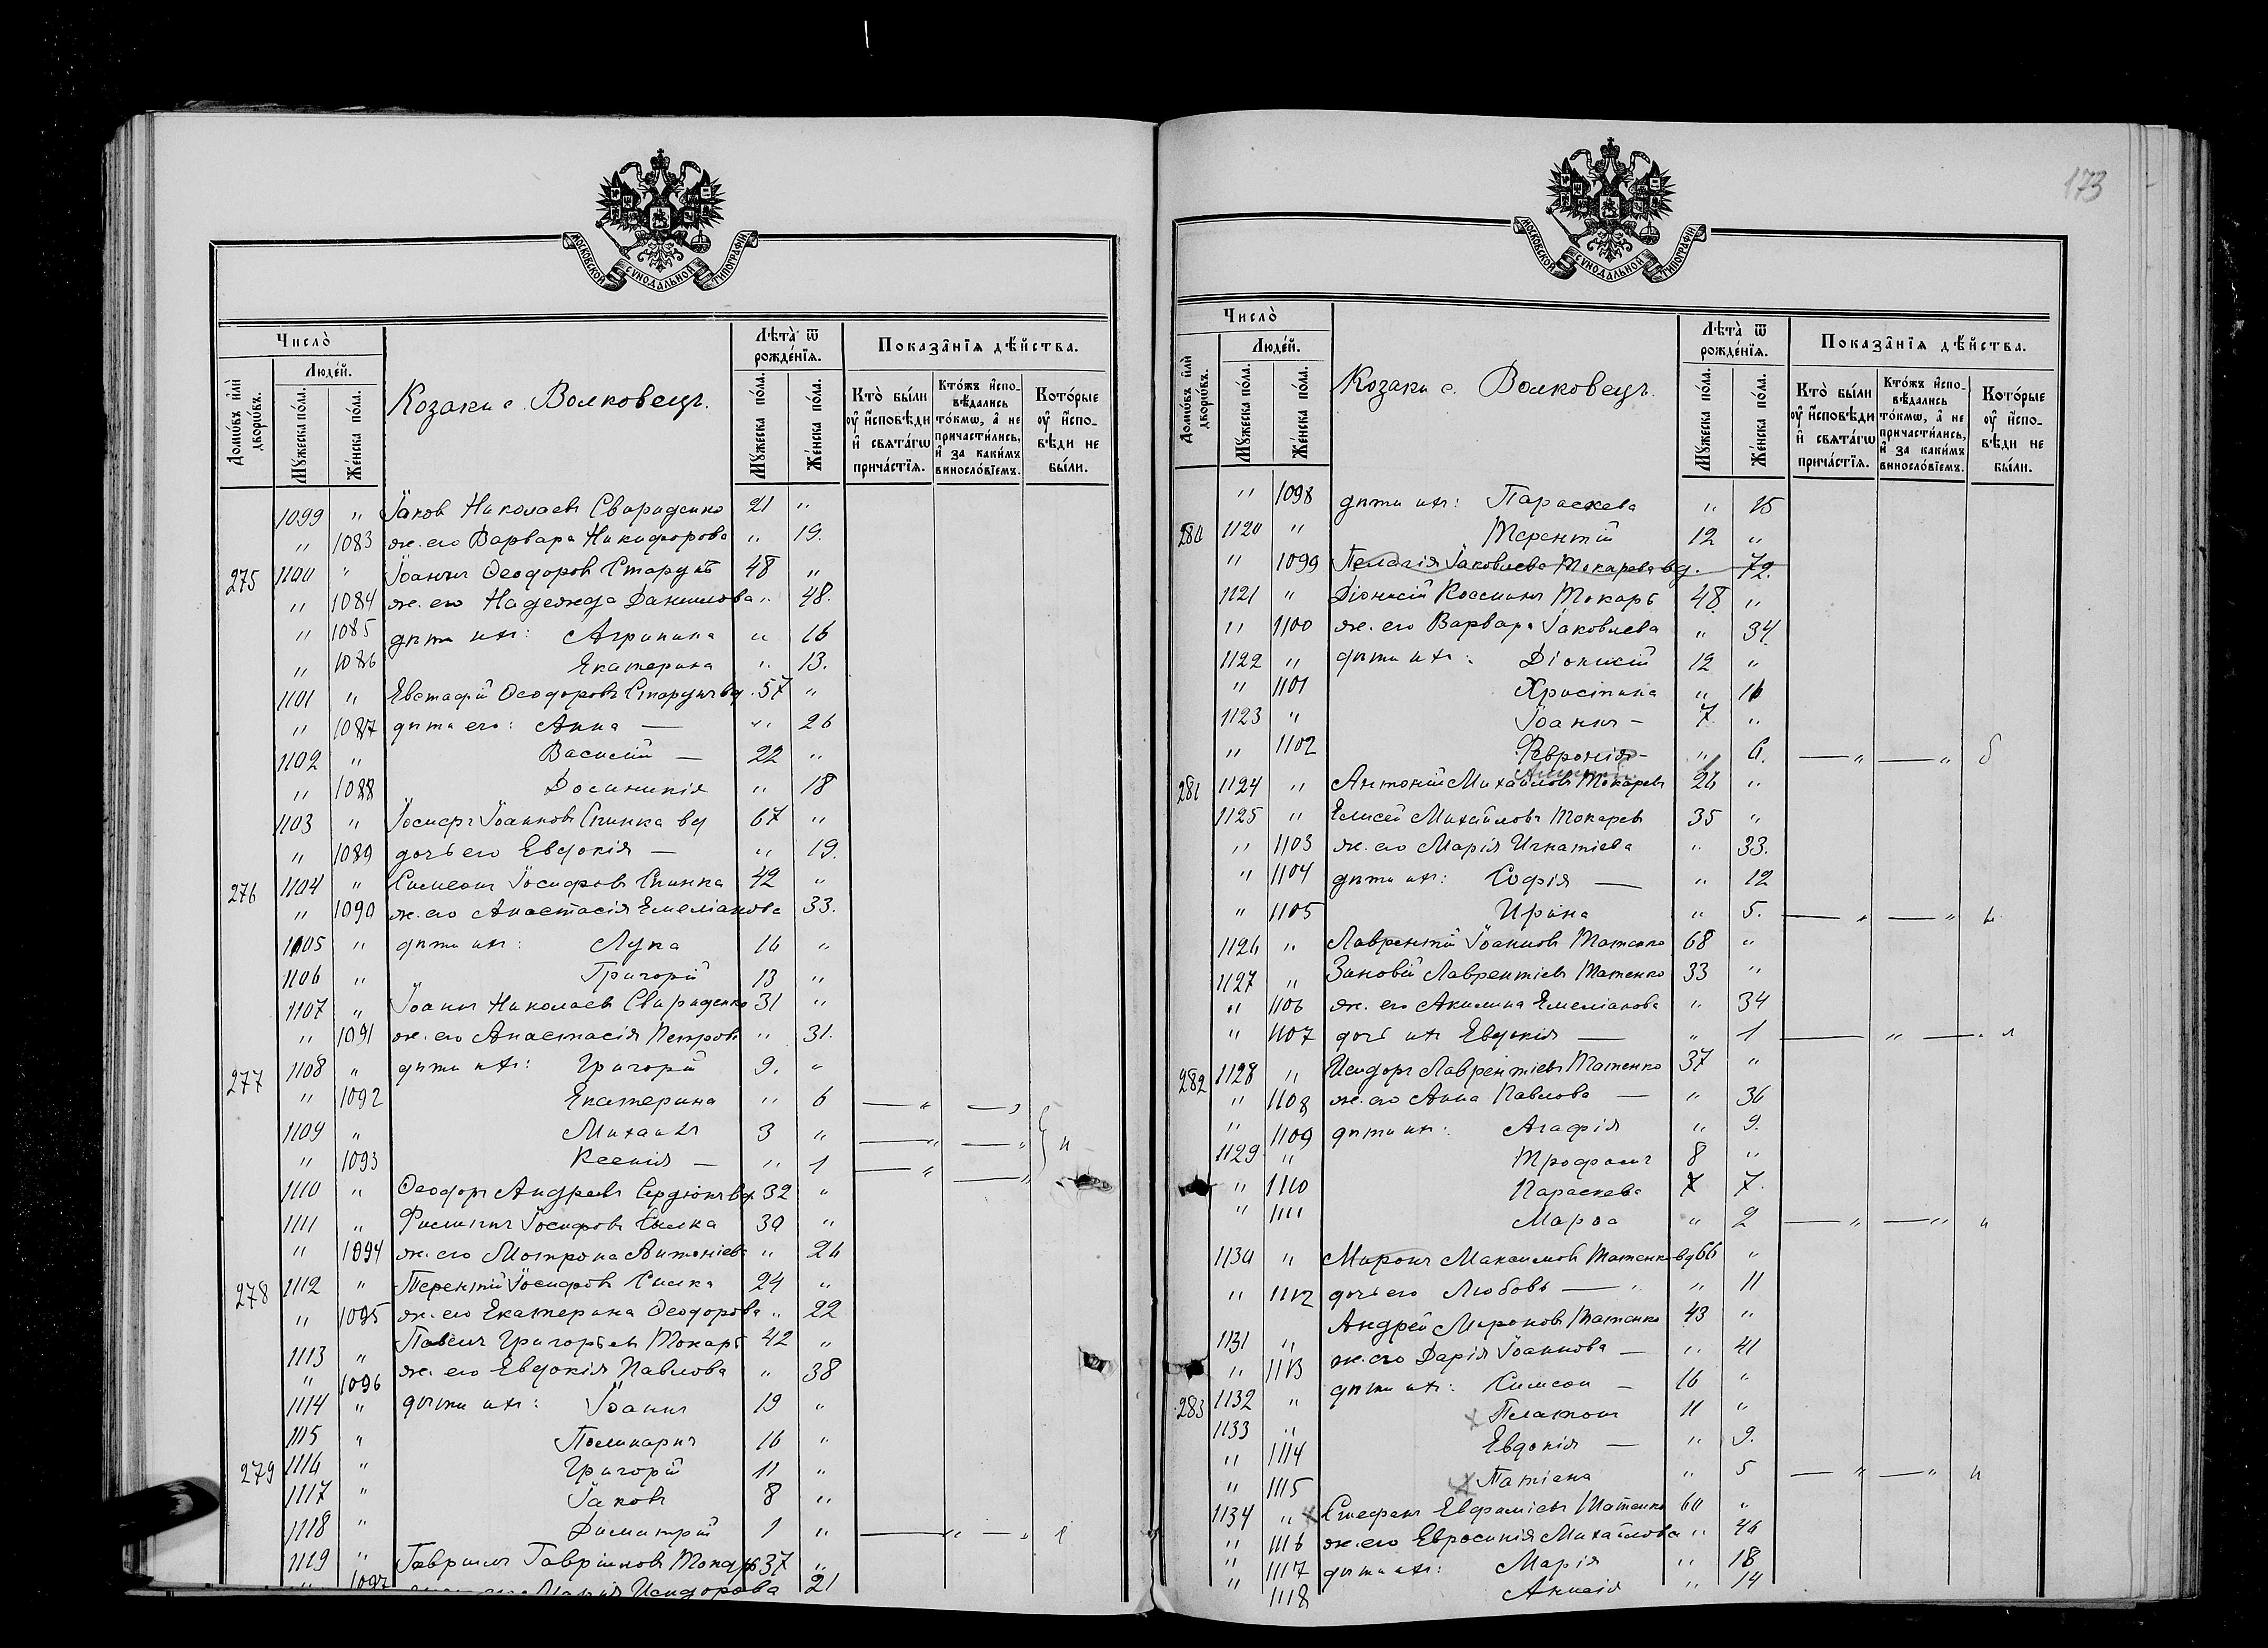 МОСКОВСКОЙ СѴНОДАЛЬНОЙ ТИПОГРАФІИ
Число̀
Людéй.
Домѡ́въ и҆лѝ дворѡ́въ.
Мꙋ́жеска пóла.
Жéнска пóла.
Козаки с. Волковецъ.
Лѣ́та ѿ рождéнїѧ.
Мꙋ́жеска пóла.
Жéнска пóла.
Показа̑нїѧ дѣ́йства.
Кто̀ бы́ли ᲂу҆ и҆́сповѣди и҆ свѧта́гѡ прича́стїѧ.
Кто́жъ и҆спо-вѣ́дались то́кмѡ, а҆ не причасти́лись, и҆ за каки́мъ винослóвїемъ.
Кото́рые ᲂу҆ и҆́спо-вѣди не бы́ли.
1099 " Іаковъ Николаевъ Свириденко 21 "
" 1083 ж. его Варвара Никифорова " 19.
275 1100 " Іоаннъ Ѳеодоровъ 48 "
" 1084 ж. его Надежда Даниилова " 48.
" 1085 дѣти ихъ: Агрипина " 16
" 1086 Екатерина " 13.
1101 " Евстафій Ѳеодоровъ вд. 57 "
" 1087 дѣти его: Анна — " 26
1102 " Василій — 22 "
" 1088 Досиникія " 18
1103 " Іосифъ Іоанновъ вд 67 "
" 1089 дочь его Евдокія — " 19.
276 1104 " Симеонъ Іосифовъ 42 "
" 1090 ж. его Анастасія Емеліанова 33.
1105 " дѣти ихъ: Лука 16 "
1106 " Григорій 13 "
1107 " Іоаннъ Николаевъ Свириденко 31 "
" 1091 ж. его Анастасія Петрова " 31.
277 1108 " дѣти ихъ: Григорій 9. "
" 1092 Екатерина " 6 — " — "
1109 " Михаилъ 3 " — " — " н
" 1093 Ксенія — " 1 — " — "
1110 " Ѳеодоръ Андреевъ Сердюкъ вд. 32 "
1111 " Филиппъ Іосифовъ 30 "
" 1094 ж. его Мотрона Антоніева " 26
278 1112 " Терентій Іосифовъ 24 "
" 1095 ж. его Екатерина Ѳеодорова " 22
1113 " Павелъ Григорьевъ Токарь 42 "
" 1096 ж. его Евдокія Павлова " 38
1114 " дѣти ихъ: Іоаннъ 19 "
1115 " Поликарпъ 16 "
279 1116 " Григорій 11 "
1117 " Іаковъ 8 "
1118 " Димитрій 1 " — " — "
1119 " Гавріилъ Гавріиловъ Токарь 37 "
" 1097 Марія Исидорова 21
173
МОСКОВСКОЙ СѴНОДАЛЬНОЙ ТИПОГРАФІИ
Число̀
Людéй.
Домѡ́въ и҆лѝ дворѡ́въ.
Мꙋ́жеска пóла.
Жéнска пóла.
Козаки с. Волковецъ.
Лѣ́та ѿ рождéнїѧ.
Мꙋ́жеска пóла.
Жéнска пóла.
Показа̑нїѧ дѣ́йства.
Кто̀ бы́ли ᲂу҆ и҆́сповѣди и҆ свѧта́гѡ прича́стїѧ.
Кто́жъ и҆спо-вѣ́дались то́кмѡ, а҆ не причасти́лись, и҆ за каки́мъ винослóвїемъ.
Кото́рые ᲂу҆ и҆́спо-вѣди не бы́ли.
" 1098 дѣти ихъ: Параскева " 15
280 1120 " Терентій 12 "
" 1099 Пелагія Іаковлева Токарева вд. 72.
1121 " Діонисій Космичъ Токарь 48 "
" 1100 ж. его Варвара Іаковлева " 34
1122 " дѣти ихъ: Діонисій 12 "
" 1101 Христина "
1123 " Іоаннъ – 7 "
" 1102 Февронія – " 6. — " — "
281 1124 " Антоній Михайловъ Токаревъ 26 "
1125 " Елисей Михайловъ Токаревъ 35 "
" 1103 ж. его Марія Игнатіева " 33.
" 1104 дѣти ихъ: Софія — " 12
" 1105 Ирина " 5. — " — "
1126 " Лаврентій Іоанновъ Татенко 68 "
1127 " Зиновій Лаврентіевъ Татенко 33 "
" 1106 ж. его Акилина Емеліанова " 34
" 1107 дочь ихъ Евдокія — " 1 — " — "
282 1128 " Исидоръ Лаврентіевъ Татенко 37 "
" 1108 ж. его Анна Павлова — " 36
" 1109 дѣти ихъ: Агафія " 9.
1129 " Трофимъ 8 "
" 1110 Параскева 7.
" 1111 Марѳа " 2 — " — " н
1130 " Миронъ Максимовъ Татенко вд 66 "
" 1112 дочь его Любовь — " 11
1131 " Андрей Мироновъ Татенко 43 "
" 1113 ж. его Дарія Іоаннова — " 41
283 1132 " дѣти ихъ: Симеонъ – 16 "
1133 " Платонъ 11 "
" 1114 Евдокія — " 9.
" 1115 Татіана " 5 — " — " н
1134 " Стефанъ Евфиміевъ Татенко 60 "
" 1116 ж. его Евросинія Михайлова " 46
" 1117 дѣти ихъ: Марія " 18
" 1118 Анисія " 14